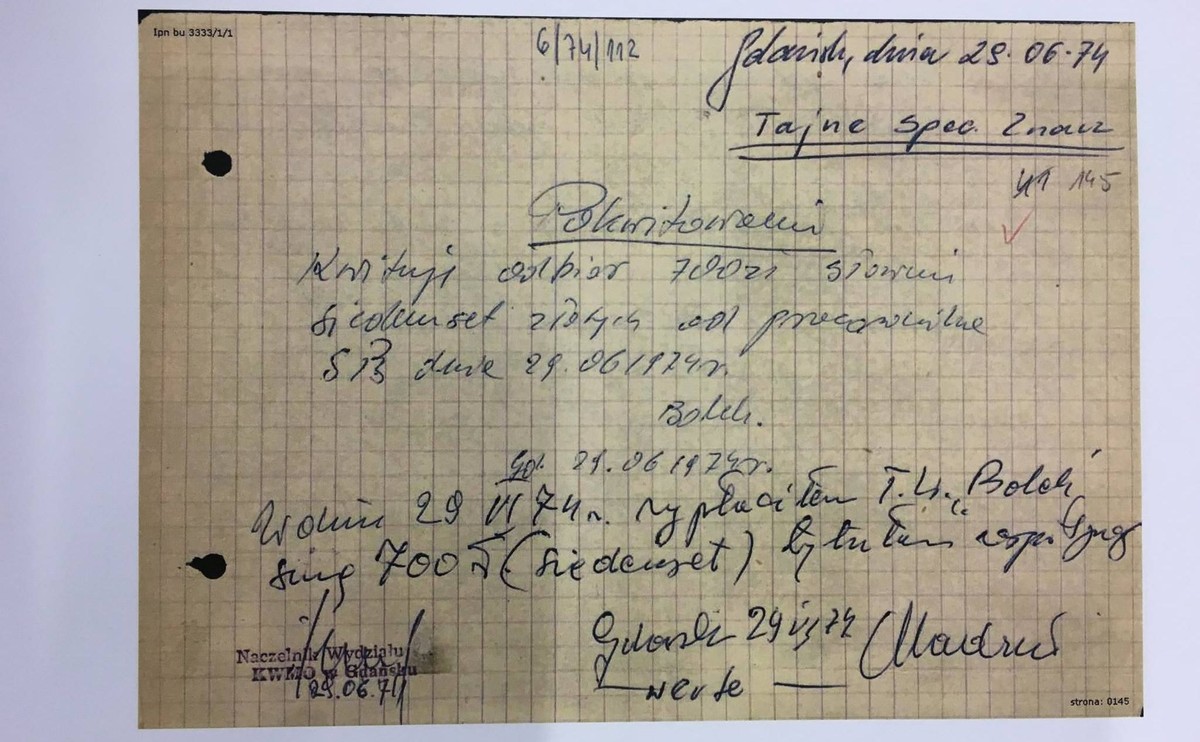 Ipn bu 3333/1/1
6/74/112
Gdańsk, dnia 29.06.74
Tajne spec. Znacz
145
Pokwitowanie
Kwituję odbiór 700zł słownie
siedemset złotych od pracownika
SB dnia 29.06 1974r.
Bolek.
Gd. 29.06 1974r.
W dniu 29 VI 74 r. wypłaciłem T.W. "Bolek"
sumę 700 zł (siedemset) tytułem
Gdańsk 29 VI 74
verte
Naczelnik Wydziału
KWMO w Gdańsku
29.06.74
strona: 0145